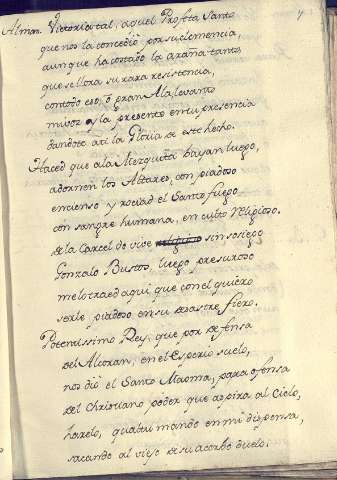 Alman. Victoria tal, aquel Profeta Santo
que nos la concedió por su clemencia,
aunque ha costado la araña tanto
que se llora su rara resistencia,
con todo eso, ó gran Ala levanto
mi voz y la presento en tu presencia
dandote a ti la Gloria de este hecho.
Haced que a la Mezquita bayan luego,
adornen los Altares, con piadoso
encienso y rociad el Santo fuego
con sangre humana, en culto religioso.
de la Carcel do vive sin sosiego
Gonzalo Bustos, luego presuroso
me lo traed aqui que con el quiero
serle piadoso en su desastre fiero.
Potentissimo Rey, que por defensa
del Alcoran, en el Esperio suelo,
nos dió el Santo Maoma, para ofensa
del Christiano poder que aspira al Cielo,
harelo, qual tu mando en mi dispensa,
sacando al viejo de su acerbo duelo.